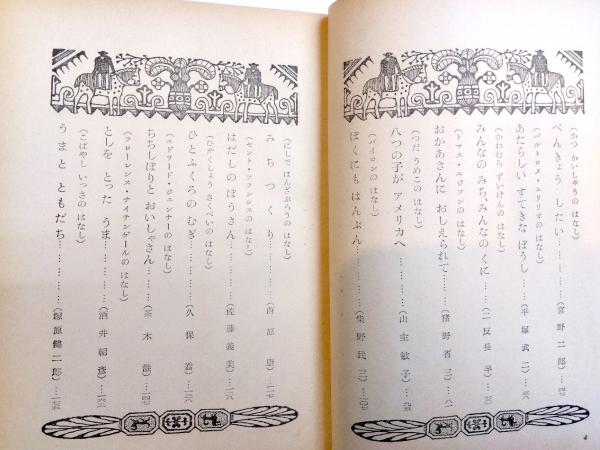 (かつ かいしゅうの はなし)
べんきょう したい………(宮野 二郎)
(バルトロメ・ムリリオの はなし)
あたらしい すてきな ぼうし…(平塚 武二)
(かわむら ずいけんの はなし)
みんなの みち、みんなの くに…(二反長 半)
(トマス・エジソンの はなし)
おかあさんに おしえられて……(猪野 省三)
(つだ うめこの はなし)
八つの子が アメリカへ………(山主 敏子)
(バイロンの はなし)
ぼくにも はんぶん…………(柴野 民三)
4
(にしで はんざぶろうの はなし)
みちつくり…………
(セント・フランシスの はなし)
はだしの ぼうさん…………(佐藤 義美)
(ひゃくしょう さくべいの はなし)
ひとふくろの むぎ…………(久保 喬)
(エドワード・ジェンナーの はなし)
ちちしぼりと おいしゃさん……
(フローレンス・ナイチンゲールの はなし)
としを とった うま…………(酒井 朝彦)
(こばやし いっさの はなし)
うまと ともだち…………(塚原 健二郎)